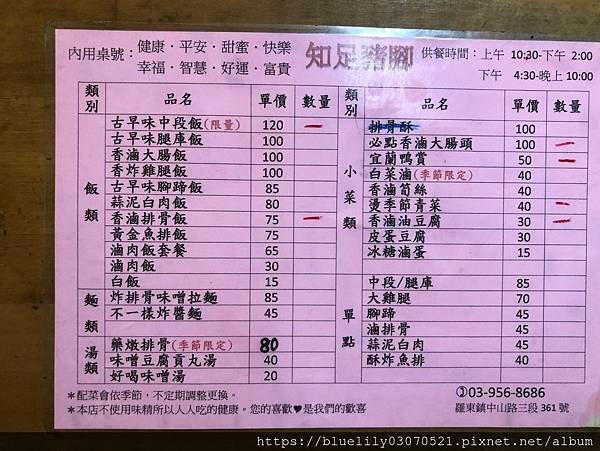 內用桌號：健康・平安・甜蜜・快樂
幸福・智慧・好運・富貴
知足豬腳
供餐時間：上午 10:30-下午 2:00
下午 4:30-晚上 10:00
類別 品名 單價 數量
飯類
古早味中段飯(限量) 120
古早味腿庫飯 100
香滷大腸飯 100
香炸雞腿飯 100
古早味腳蹄飯 85
蒜泥白肉飯 80
香滷排骨飯 75
黃金魚排飯 75
滷肉飯套餐 65
滷肉飯 30
白飯 15
麵類
炸排骨味噌拉麵 85
不一樣炸醬麵 45
湯類
藥燉排骨(季節限定) 80
味噌豆腐貢丸湯 40
好喝味噌湯 20
類別 品名 單價 數量
小菜類
排骨酥 100
必點香滷大腸頭 100
宜蘭鴨賞 50
白菜滷(季節限定) 40
香滷筍絲 40
燙季節青菜 40
香滷油豆腐 30
皮蛋豆腐 30
冰糖滷蛋 15
單點
中段/腿庫 85
大雞腿 70
腳蹄 45
滷排骨 45
蒜泥白肉 45
酥炸魚排 40
＊配菜會依季節，不定期調整更換。
＊本店不使用味精所以人人吃的健康。您的喜歡♥是我們的歡喜
03-956-8686
羅東鎮中山路三段 361 號
https://bluelily03070521.pixnet.net/album